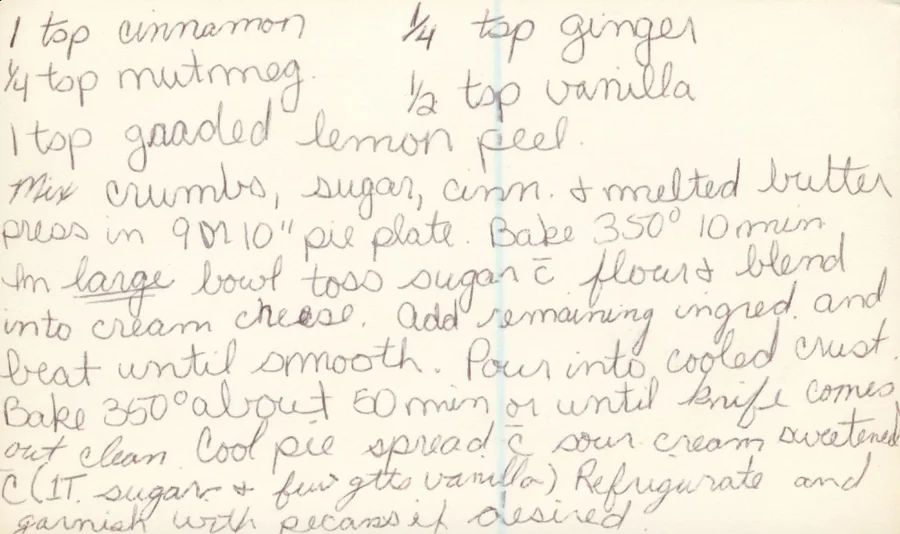 1 tsp cinnamon 1/4 tsp ginger
1/4 tsp nutmeg. 1/2 tsp vanilla
1 tsp graded lemon peel.
Mix crumbs, sugar, cinn. & melted butter
press in 9 or 10" pie plate. Bake 350° 10 min
In large bowl toss sugar c̄ flour & blend
into cream cheese. Add remaining ingred. and
beat until smooth. Pour into cooled crust.
Bake 350° about 50 min or until knife comes
out clean Cool pie spread c̄ sour cream sweetened
c̄ (1T. sugar & few gtts vanilla) Refrigurate and
garnish with pecans if desired.